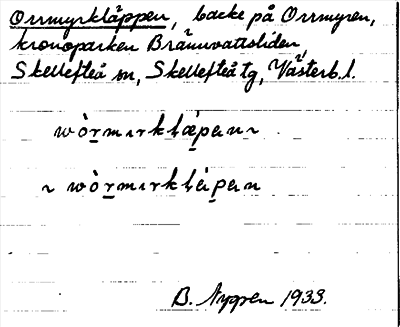 Orrmyrkläppen, backe på Orrmyren,
kronoparken Brännvattsliden,
Skellefteå sn, Skellefteå tg, Västerb.l.
wòrmırklæpan ~
~ wòrmırklápan
B. Nygren 1933.